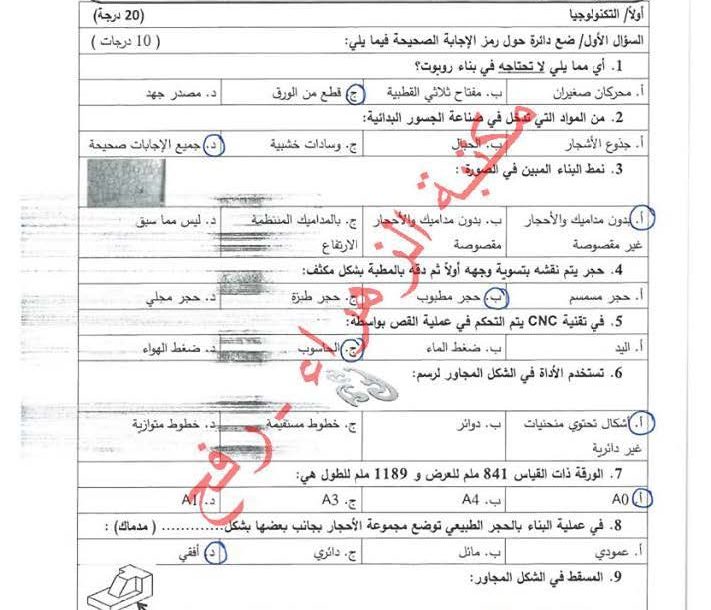 أولاً/ التكنولوجيا (20 درجة)
السؤال الأول/ ضع دائرة حول رمز الإجابة الصحيحة فيما يلي: ( 10 درجات )
1. أي مما يلي لا تحتاجه في بناء روبوت؟
أ. محركان صغيران ب. مفتاح ثلاثي القطبية ج. قطع من الورق د. مصدر جهد
2. من المواد التي تدخل في صناعة الجسور البدائية:
أ. جذوع الأشجار ب. الحبال ج. وسادات خشبية د. جميع الإجابات صحيحة
3. نمط البناء المبين في الصورة :
أ. بدون مداميك والأحجار ب. بدون مداميك والأحجار ج. بالمداميك المنتظمة د. ليس مما سبق
غير مقصوصة مقصوصة الارتفاع
4. حجر يتم نقشه بتسوية وجهه أولاً ثم دقه بالمطبة بشكل مكثف:
أ. حجر مسمسم ب. حجر مطبوب ج. حجر طبزة د. حجر مجلي
5. في تقنية CNC يتم التحكم في عملية القص بواسطة:
أ. اليد ب. ضغط الماء ج. الحاسوب د. ضغط الهواء
6. تستخدم الأداة في الشكل المجاور لرسم:
أ. أشكال تحتوي منحنيات ب. دوائر ج. خطوط مستقيمة د. خطوط متوازية
غير دائرية
7. الورقة ذات القياس 841 ملم للعرض و 1189 ملم للطول هي:
أ. A0 ب. A4 ج. A3 د. A1
8. في عملية البناء بالحجر الطبيعي توضع مجموعة الأحجار بجانب بعضها بشكل............ ( مدماك) :
أ. عمودي ب. مائل ج. دائري د. أفقي
9. المسقط في الشكل المجاور:
مكتبة الزهراء - رفح